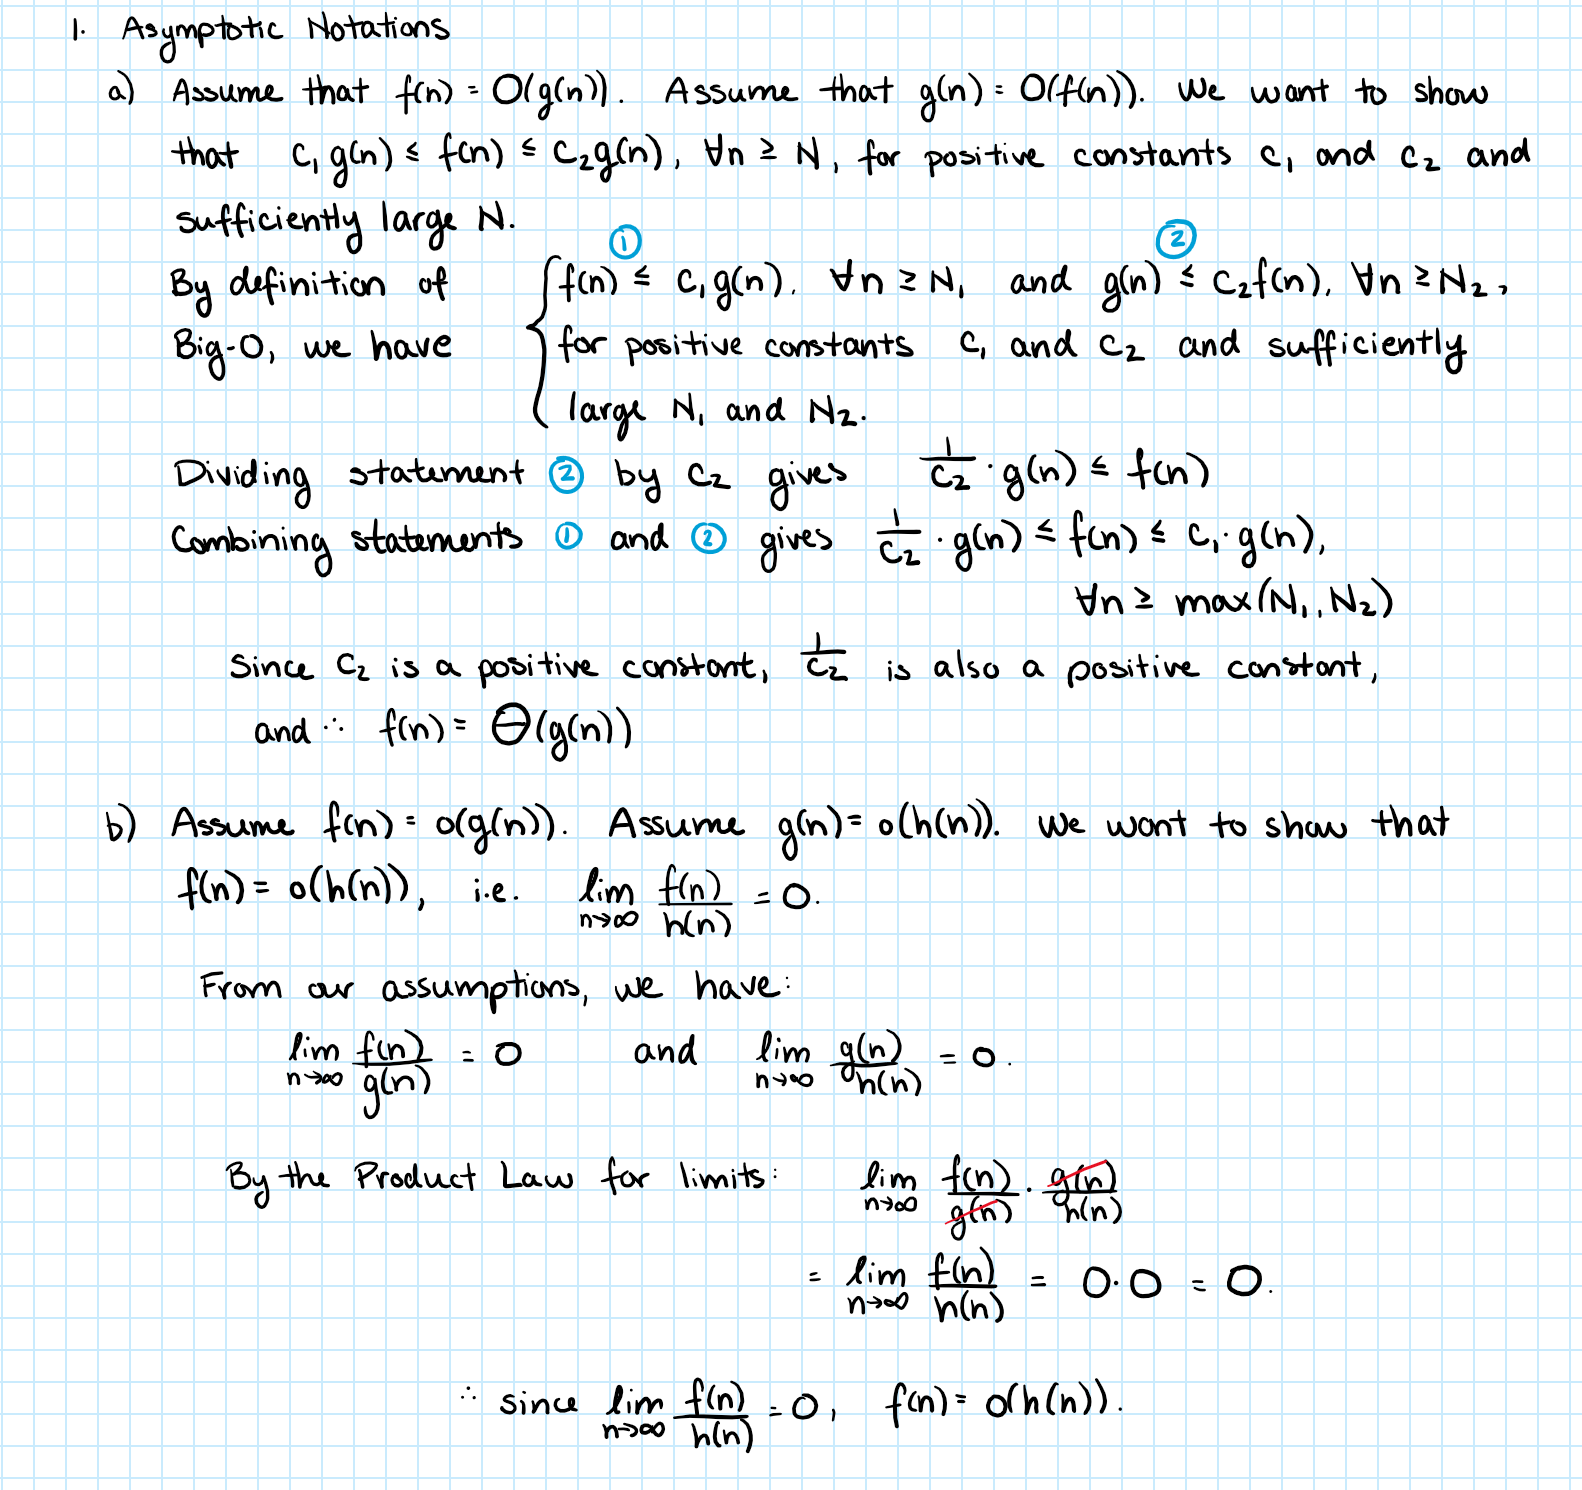 1. Asymptotic Notations
a) Assume that f(n) = O(g(n)). Assume that g(n) = O(f(n)). We want to show
that c₁ g(n) ≤ f(n) ≤ c₂g(n), ∀n ≥ N, for positive constants c₁ and c₂ and
sufficiently large N.
① ②
By definition of { f(n) ≤ c₁g(n), ∀n ≥ N₁ and g(n) ≤ c₂f(n), ∀n ≥ N₂,
Big-O, we have for positive constants c₁ and c₂ and sufficiently
large N₁ and N₂.
Dividing statement ② by c₂ gives 1/c₂ · g(n) ≤ f(n)
Combining statements ① and ② gives 1/c₂ · g(n) ≤ f(n) ≤ c₁· g(n),
∀n ≥ max(N₁, N₂)
Since c₂ is a positive constant, 1/c₂ is also a positive constant,
and ∴ f(n) = Θ(g(n))
b) Assume f(n) = o(g(n)). Assume g(n) = o(h(n)). We want to show that
f(n) = o(h(n)), i.e. lim n→∞ f(n)/h(n) = 0.
From our assumptions, we have:
lim n→∞ f(n)/g(n) = 0 and lim n→∞ g(n)/h(n) = 0.
By the Product Law for limits: lim n→∞ f(n)/g(n) · g(n)/h(n)
= lim n→∞ f(n)/h(n) = 0·0 = 0.
∴ since lim n→∞ f(n)/h(n) = 0, f(n) = o(h(n)).